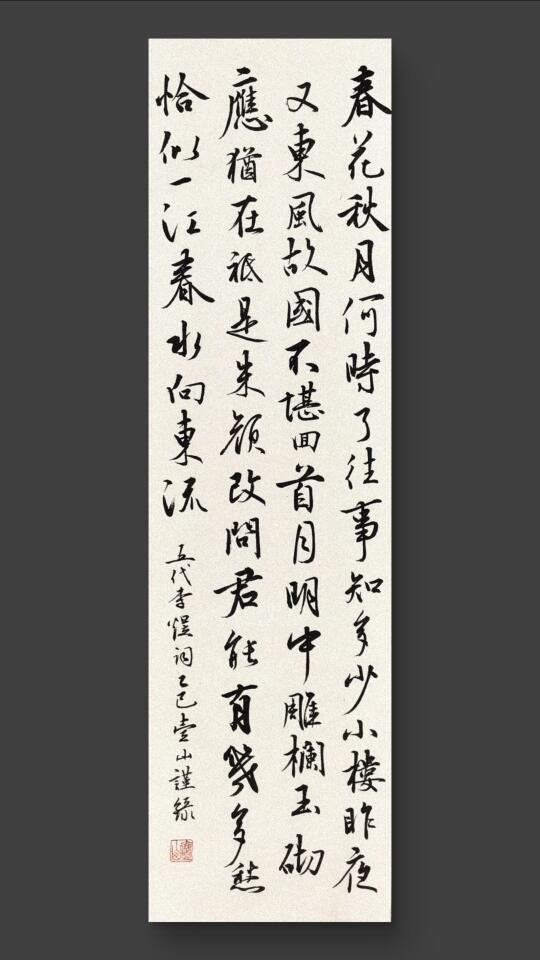 春花秋月何時了往事知多少小樓昨夜
又東風故國不堪回首月明中雕欄玉砌
應猶在祇是朱顏改問君能有幾多愁
恰似一江春水向東流
五代李煜詞乙巳壹山謹錄